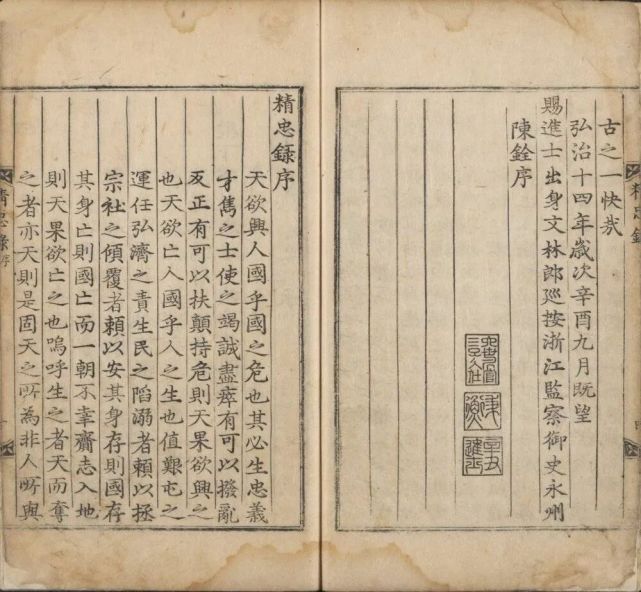 古之一快㦲
弘治十四年歲次辛酉九月旣望
賜進士出身文林郎廵按浙江監察御史永州
陳銓序
精忠錄序
天欲興人國乎國之危也其必生忠義
才雋之士使之竭誠盡瘁有可以撥亂
反正有可以扶顛持危則天果欲興之
也天欲亡人國乎人之生也值艱屯之
運任弘濟之責生民之陷溺者頼以拯
宗社之傾覆者頼以安其身存則國存
其身亡則國亡而一朝不幸齎志入地
則天果欲亡之也嗚呼生之者天而奪
之者亦天則是固天之所為非人所與
精忠錄 序